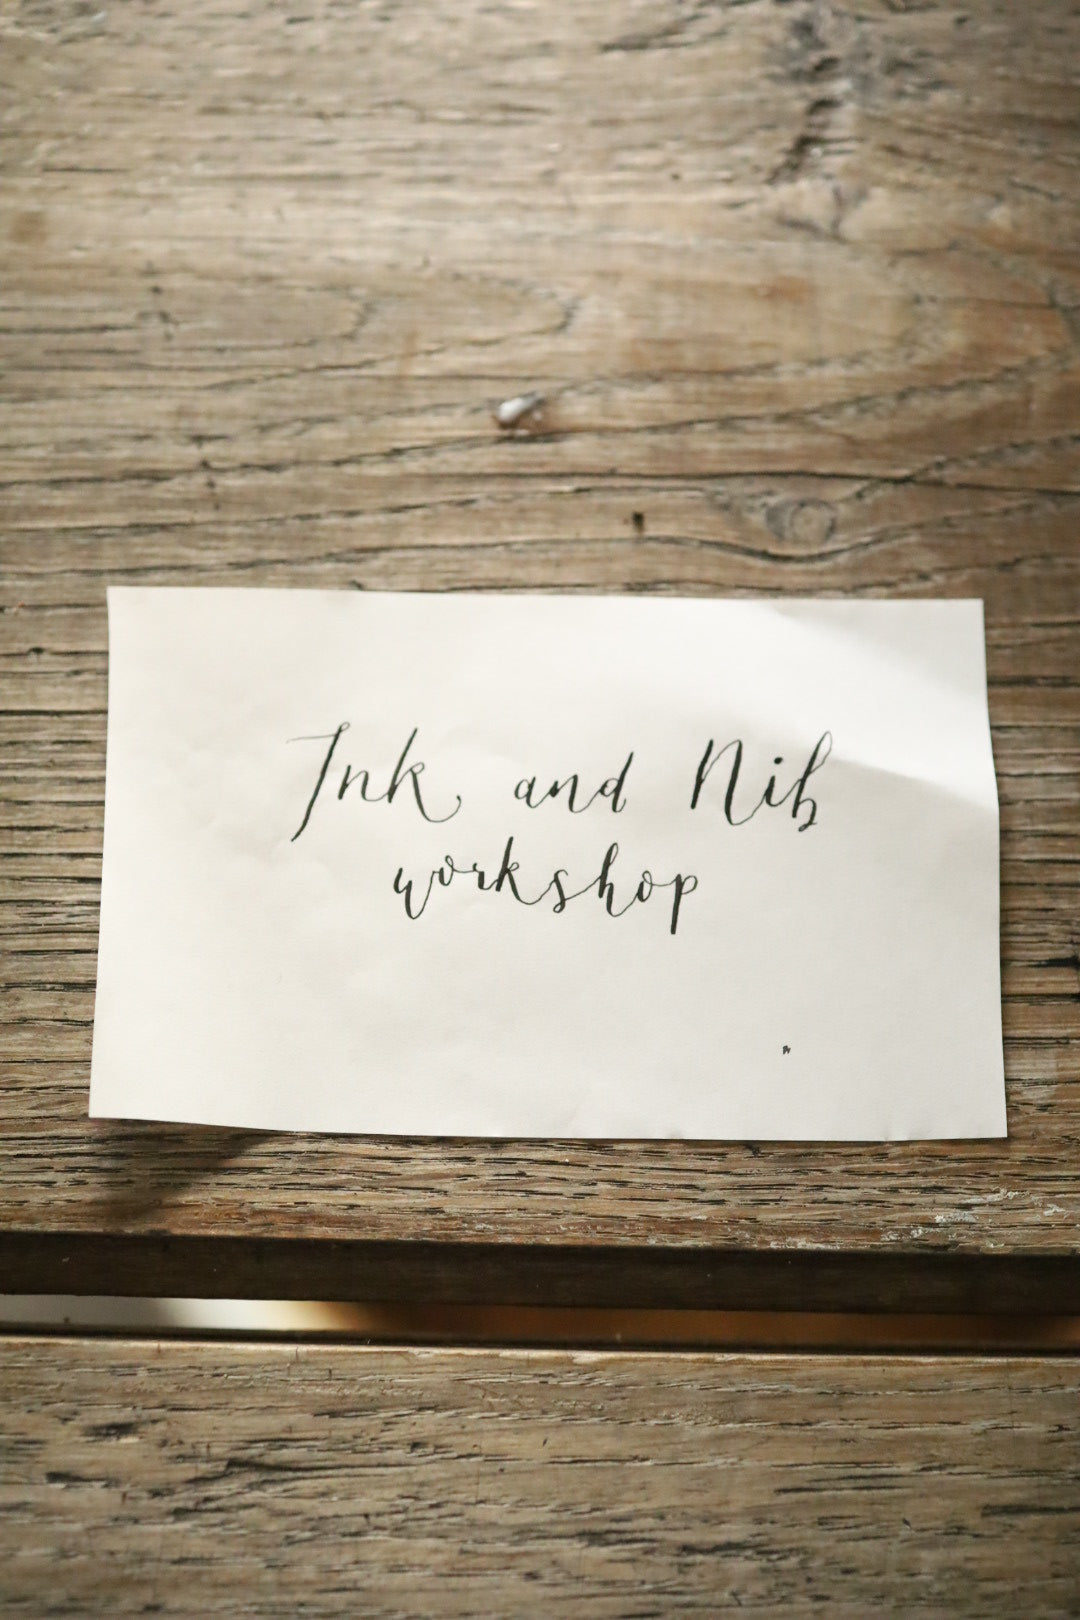 Ink and Nib
workshop